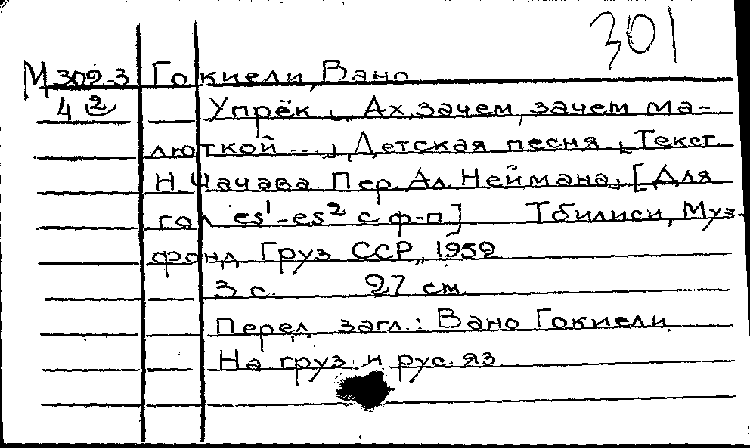 301
М 309-3 Гокиели, Вано
4 2 Упрёк „Ах, зачем, зачем ма-
люткой ..." Детская песня. Текст
Н. Чачава Пер. Ал. Неймана. [Для
гол es¹-es² с ф-п] Тбилиси, Муз-
фонд Груз ССР, 1959
3 с. 27 см
Перед загл.: Вано Гокиели
На груз. и рус. яз